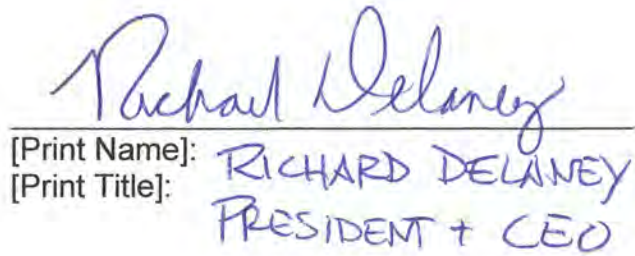 Richard Delaney
[Print Name]: RICHARD DELANEY
[Print Title]: PRESIDENT + CEO